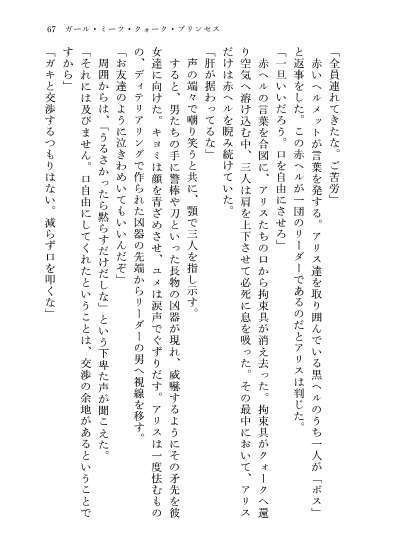 67　ガール・ミーツ・クォーク・プリンセス
「全員連れてきたな。ご苦労」
　赤いヘルメットが言葉を発する。アリス達を取り囲んでいる黒ヘルのうち一人が「ボス」
と返事をした。この赤ヘルが一団のリーダーであるのだとアリスは判じた。
「一旦いいだろう。口を自由にさせろ」
　赤ヘルの言葉を合図に、アリスたちの口から拘束具が消え去った。拘束具がクォークへ還
り空気へ溶け込む中、三人は肩を上下させて必死に息を吸った。その最中において、アリス
だけは赤ヘルを睨み続けていた。
「肝が据わってるな」
　声の端々で嘲り笑うと共に、顎で三人を指し示す。
　すると、男たちの手に警棒や刀といった長物の凶器が現れ、威嚇するようにその矛先を彼
女達に向けた。キヨミは顔を青ざめさせ、ユメは涙声でぐずりだす。アリスは一度怯むもの
の、ディテリアリングで作られた凶器の先端からリーダーの男へ視線を移す。
「お友達のように泣きわめいてもいいんだぞ」
　周囲からは、「うるさかったら黙らすだけだしな」という下卑た声が聞こえた。
「それには及びません。口自由にしてくれたということは、交渉の余地があるということで
すから」
「ガキと交渉するつもりはない。減らず口を叩くな」